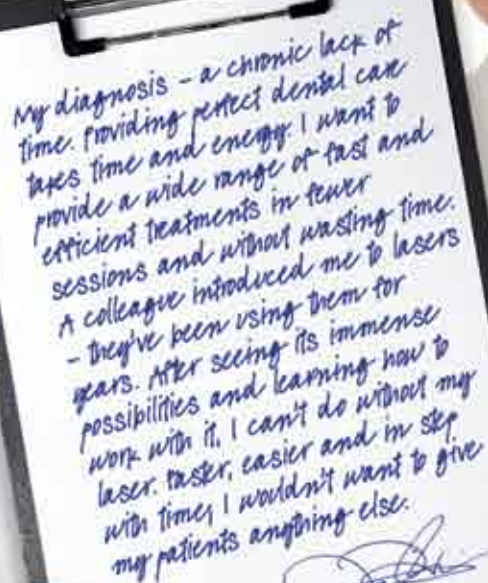 My diagnosis – a chronic lack of
time. Providing perfect dental care
takes time and energy. I want to
provide a wide range of fast and
efficient treatments in fewer
sessions and without wasting time.
A colleague introduced me to lasers
– they've been using them for
years. After seeing its immense
possibilities and learning how to
work with it, I can't do without my
laser. Faster, easier and in step
with time, I wouldn't want to give
my patients anything else.